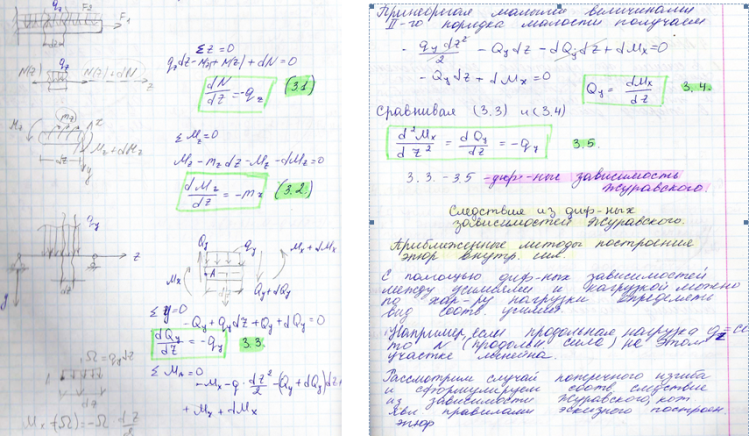 q_z
F_2
F_1
Σz=0
q_z dz - N(z) + N(z) + dN = 0
N(z)
q_z
N(z)+dN
z
dN/dz = -q_z (3.1)
m_z
Σ M_z = 0
M_z + dM_z
M_z - m_z dz - M_z - dM_z = 0
dM_z/dz = -m_z (3.2.)
q_y
z
Q_y
q_y
M_x + dM_x
M_x
A
Q_y + dQ_y
Σ y = 0
- Q_y + q_y dz + Q_y + dQ_y = 0
dQ_y/dz = -q_y 3.3.
Ω = q_y dz
Σ M_A = 0
- M_x - q · dz²/2 - (Q_y + dQ_y) dz +
+ M_x + dM_x
M_x (Ω) = -Ω · dz/2
Пренебрегая малыми величинами
II-го порядка малости получаем
- q_y dz²/2 - Q_y dz - dQ_y dz + dM_x = 0
- Q_y dz + dM_x = 0
Q_y = dM_x/dz 3.4.
Сравнивая (3,3) и (3,4)
d²M_x/dz² = dQ_y/dz = -q_y 3.5.
3.3.-3.5 - диф-ные зависимость
Журавского.
Следствия из диф-ных
зависимостей Журавского.
Приближенные методы построение
эпюр внутр. сил.
С помощью диф-ных зависимостей
между усилиями и нагрузкой можно
по хар-ру нагрузки определить
вид соотв. усилия.
Например, если продольная нагрузка q_z = co
то N (продольн сила) на этом
участке линейна.
Рассмотрим случай поперечного изгиба
и сформулируем соотв. следствие
из зависимости Журавского, кот.
явл правилами эскизного построен.
эпюр